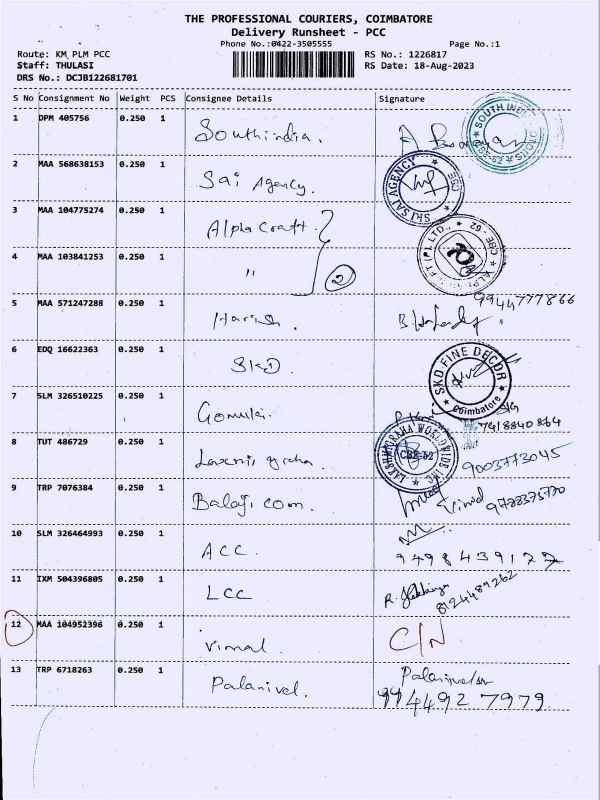 THE PROFESSIONAL COURIERS, COIMBATORE
Delivery Runsheet - PCC
Phone No.:0422-3505555 Page No.:1
Route: KM_PLM PCC RS No.: 1226817
Staff: THULASI RS Date: 18-Aug-2023
DRS No.: DCJB122681701
S No Consignment No Weight PCS Consignee Details Signature
1 DPM 405756 0.250 1 Southindia.
2 MAA 568638153 0.250 1 Sai Agency. SKI SAI AGENCY CBE
3 MAA 104775274 0.250 1 Alpha Craft
4 MAA 103841253 0.250 1 " 2
5 MAA 571247288 0.250 1 Harish. 9944777866
6 EDQ 16622363 0.250 1 SKD SKD FINE DECOR Coimbatore
7 SLM 326510225 0.250 1 7418840864
8 TUT 486729 0.250 1 Laxmi graha. LAKSHMIGRAHA WORLDWIDE INC CBE-62 9003773045
9 TRP 7076384 0.250 1 Balaji com.
10 SLM 326464993 0.250 1 ACC.
11 IXM 504396805 0.250 1 LCC 8124489262
12 MAA 104952396 0.250 1 Vimal. C/N
13 TRP 6718263 0.250 1 Palanivel. Palanivel
994492 7979